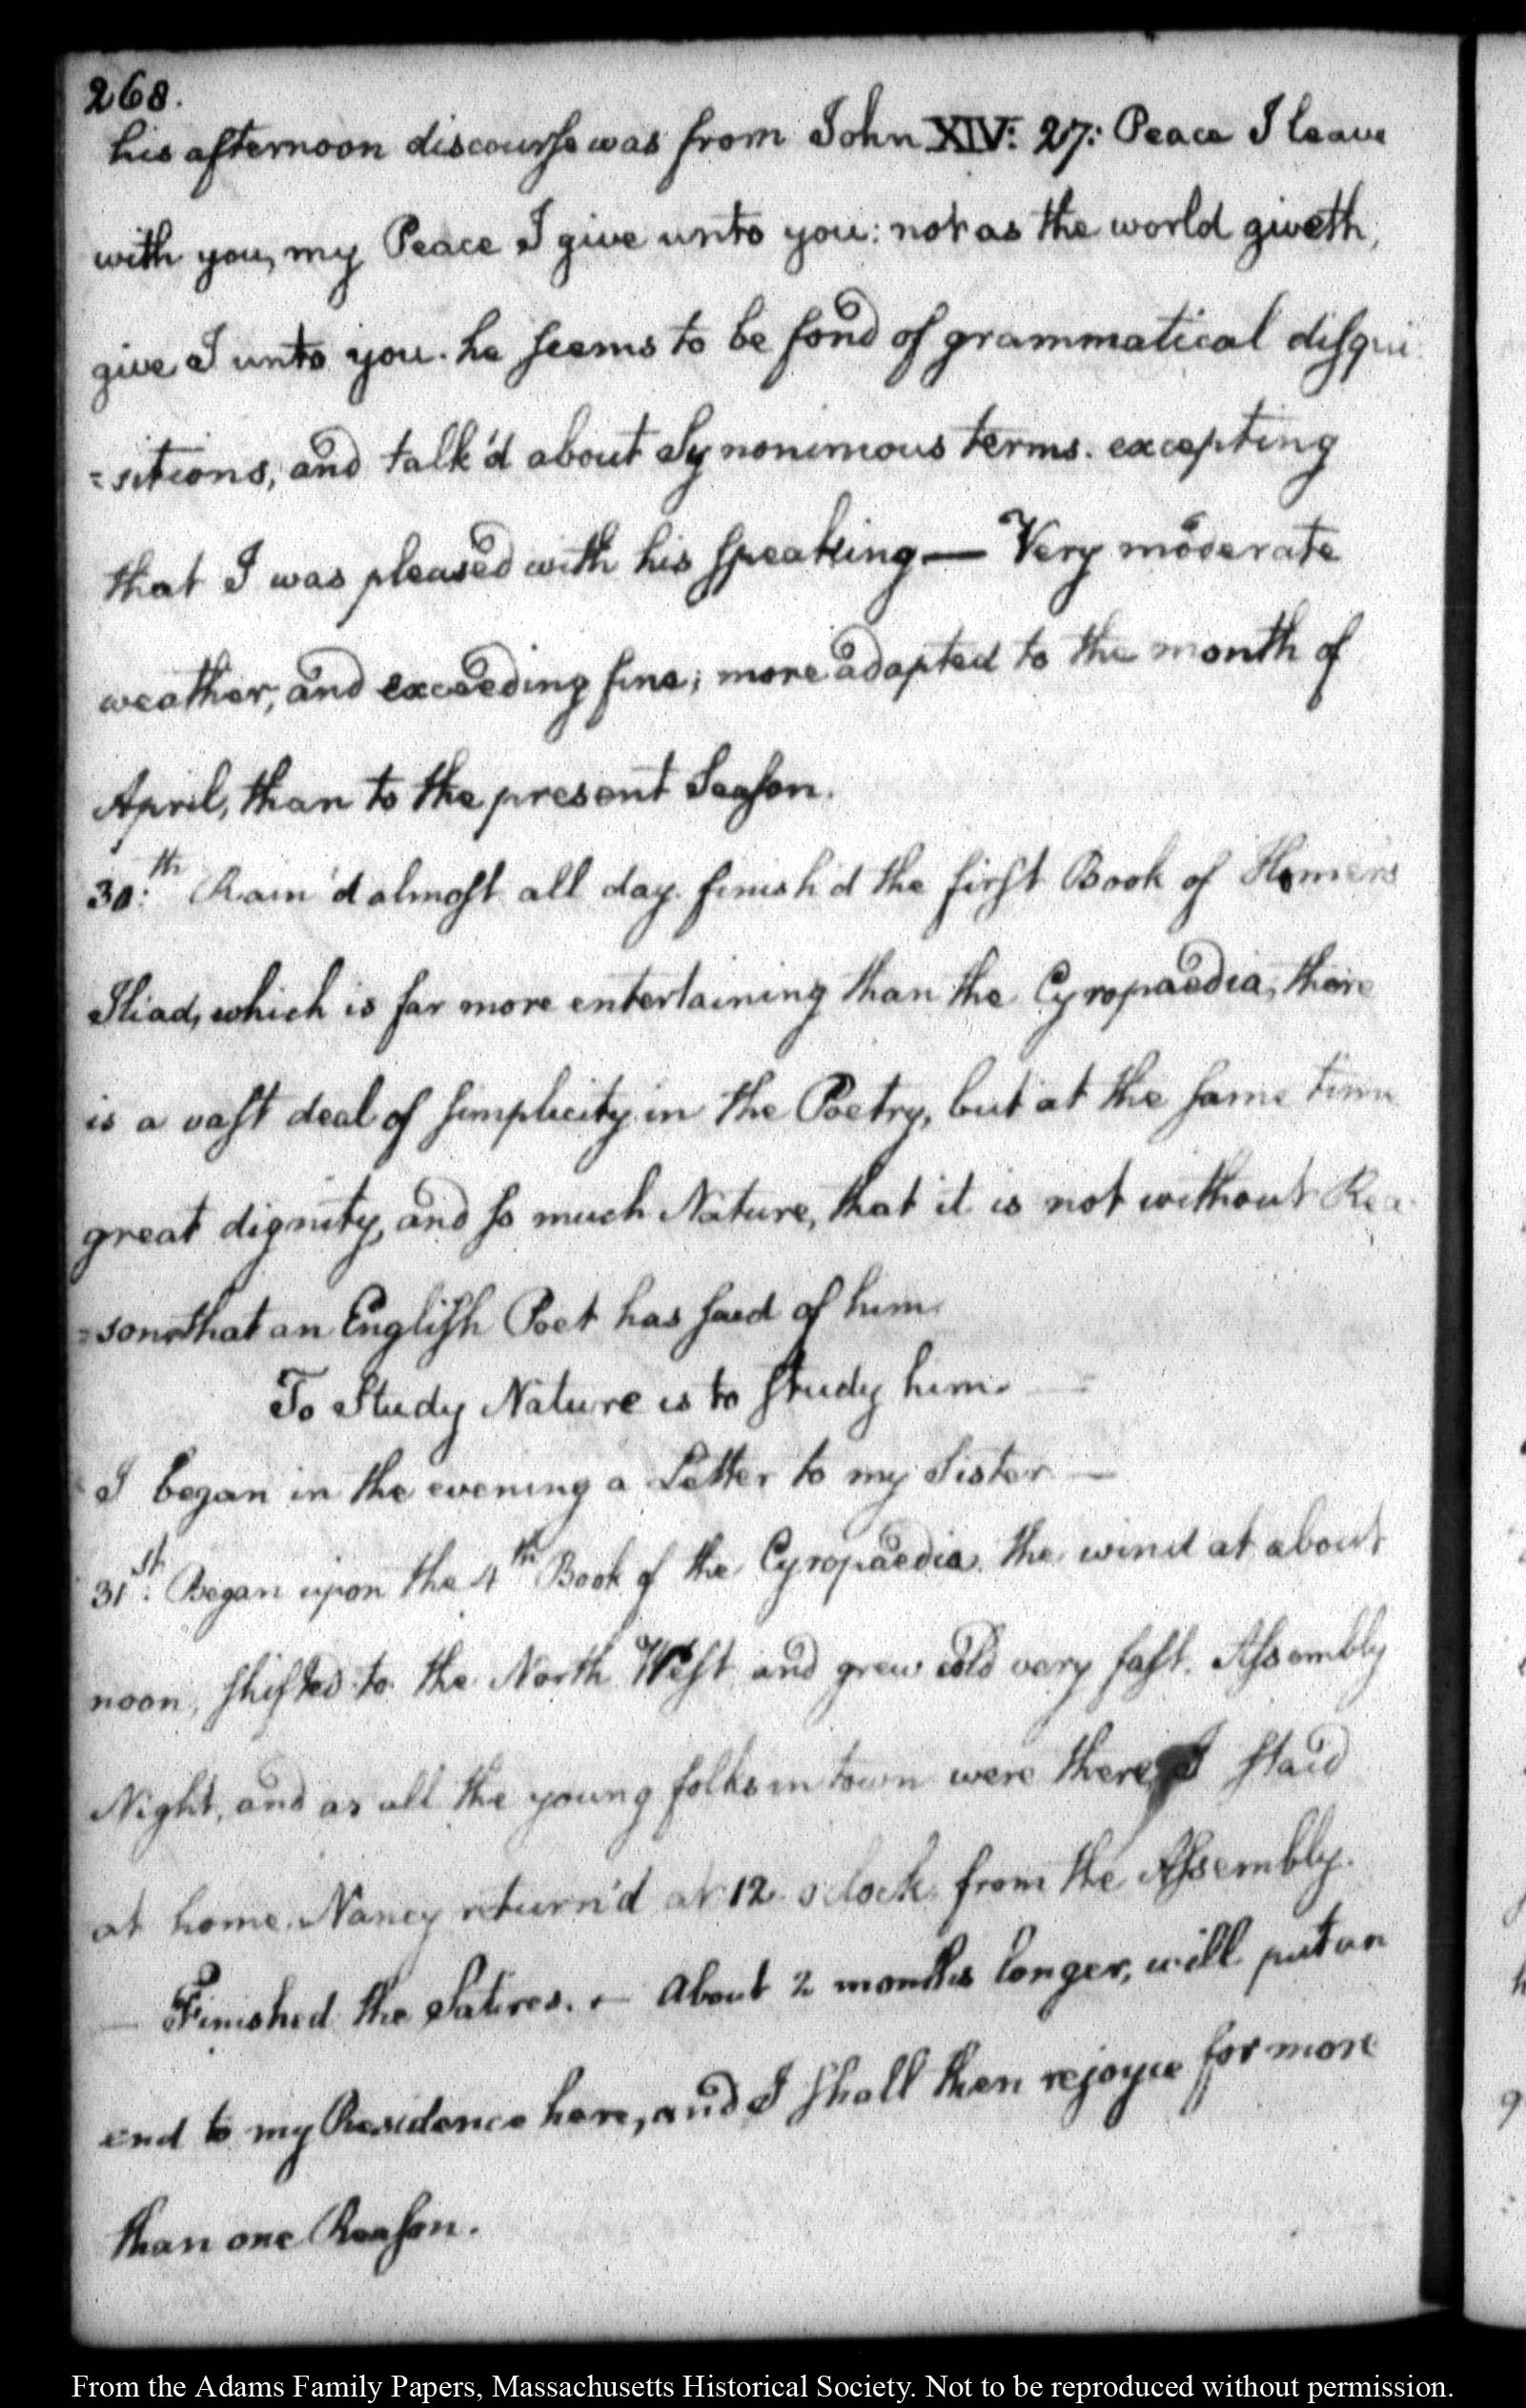 268.
his afternoon discourse was from John XIV: 27: Peace I leave
with you, my Peace I give unto you: not as the world giveth,
give I unto you. he seems to be fond of grammatical disqui
=sitions, and talk'd about Synonimous terms. excepting
that I was pleased with his speaking — Very moderate
weather, and exceeding fine; more adapted to the month of
April, than to the present Season.
30:th Rain'd almost all day. finish'd the first Book of Homer's
Iliad, which is far more entertaining than the Cyropaedia, there
is a vast deal of simplicity in the Poetry, but at the same time
great dignity, and so much Nature, that it is not without Rea
=son, that an English Poet has said of him
To Study Nature is to study him. —
I began in the evening a Letter to my Sister —
31st: Began upon the 4th Book of the Cyropaedia. the wind at about
noon, shifted to the North West and grew cold very fast. Assembly
Night, and as all the young folks in town were there, I staid
at home. Nancy return'd at 12 o'clock from the Assembly.
— Finished the Satires. — About 2 months longer, will put an
end to my Residence here, and I shall then rejoyce for more
than one Reason.
From the Adams Family Papers, Massachusetts Historical Society. Not to be reproduced without permission.